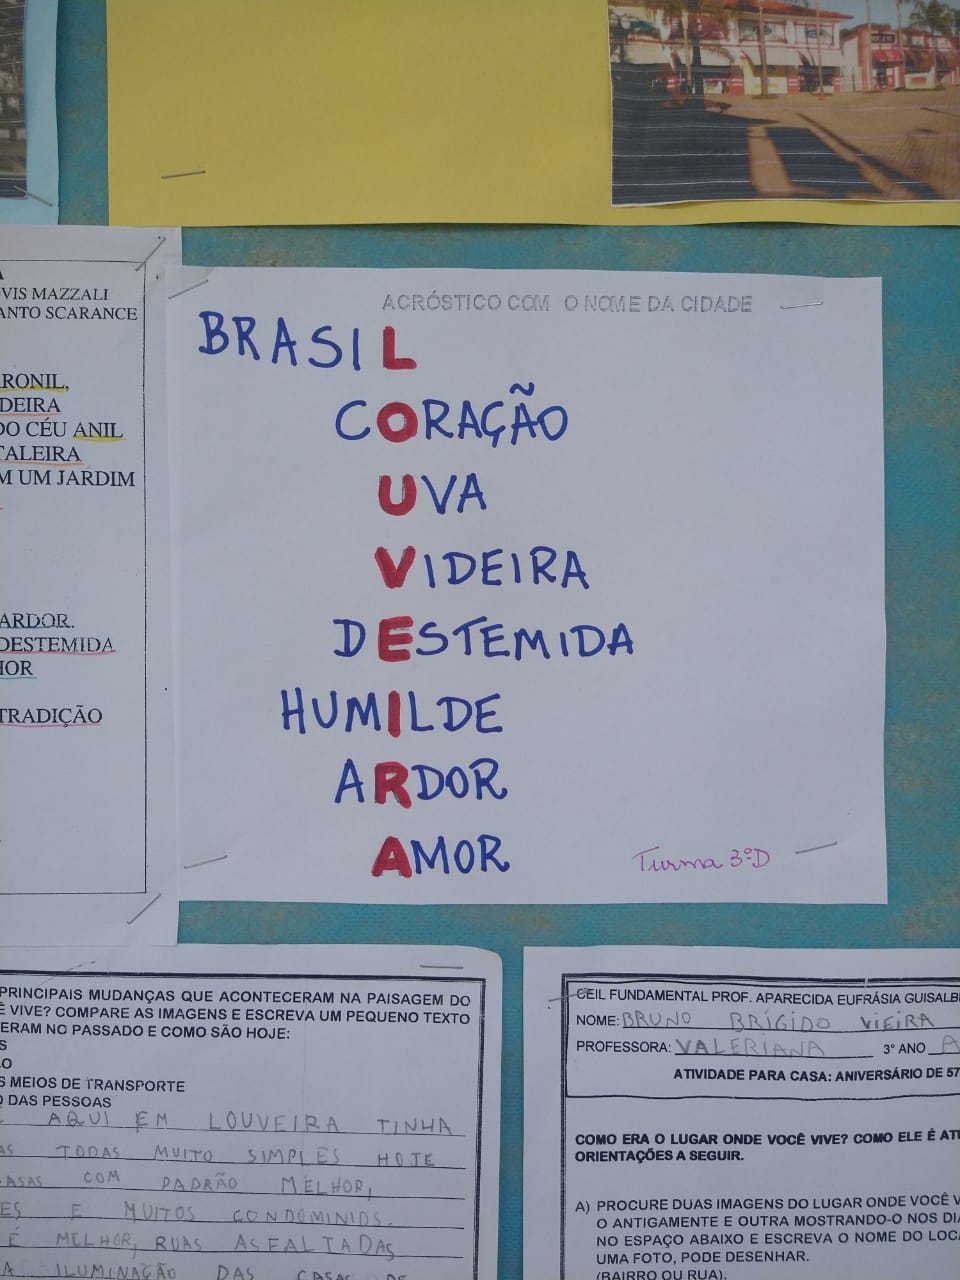 ACRÓSTICO COM O NOME DA CIDADE
BRASIL
CORAÇÃO
UVA
VIDEIRA
DESTEMIDA
HUMILDE
ARDOR
AMOR
Turma 3ºD
VIS MAZZALI
ANTO SCARANCE
RONIL,
DEIRA
DO CÉU ANIL
TALEIRA
M UM JARDIM
ARDOR.
DESTEMIDA
TRADIÇÃO
PRINCIPAIS MUDANÇAS QUE ACONTECERAM NA PAISAGEM DO
Ê VIVE? COMPARE AS IMAGENS E ESCREVA UM PEQUENO TEXTO
ERAM NO PASSADO E COMO SÃO HOJE:
S
O
S MEIOS DE TRANSPORTE
DAS PESSOAS
AQUI EM LOUVEIRA TINHA
AS TODAS MUITO SIMPLES HOJE
CASAS COM PADRÃO MELHOR,
ES E MUITOS CONDOMINIOS.
É MELHOR, RUAS ASFALTADAS
A ILUMINAÇÃO DAS CASAS DE
CEIL FUNDAMENTAL PROF. APARECIDA EUFRÁSIA GUISALB
NOME: BRUNO BRÍGIDO VIEIRA
PROFESSORA: VALERIANA 3º ANO A
ATIVIDADE PARA CASA: ANIVERSÁRIO DE 57
COMO ERA O LUGAR ONDE VOCÊ VIVE? COMO ELE É AT
ORIENTAÇÕES A SEGUIR.
A) PROCURE DUAS IMAGENS DO LUGAR ONDE VOCÊ V
O ANTIGAMENTE E OUTRA MOSTRANDO-O NOS DI
NO ESPAÇO ABAIXO E ESCREVA O NOME DO LOC
UMA FOTO, PODE DESENHAR.
(BAIRRO OU RUA).